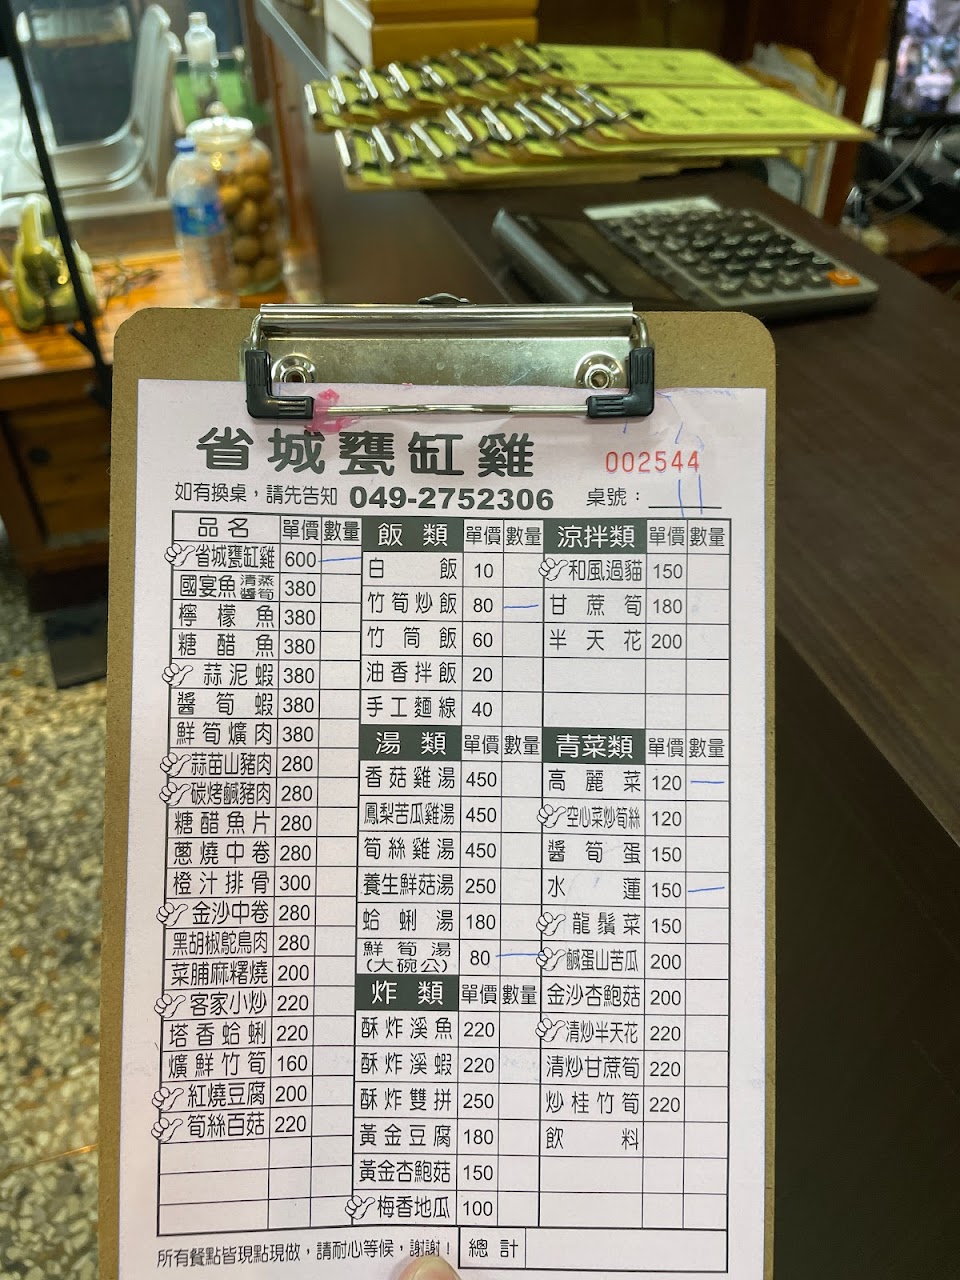 省城甕缸雞
002544
如有換桌，請先告知 049-2752306 桌號： 11
品名 單價 數量
省城甕缸雞 600 一
國宴魚 清蒸 醬筍 380
檸檬魚 380
糖醋魚 380
蒜泥蝦 380
醬筍蝦 380
鮮筍爌肉 380
蒜苗山豬肉 280
碳烤鹹豬肉 280
糖醋魚片 280
蔥燒中卷 280
橙汁排骨 300
金沙中卷 280
黑胡椒鴕鳥肉 280
菜脯麻糬燒 200
客家小炒 220
塔香蛤蜊 220
爌鮮竹筍 160
紅燒豆腐 200
筍絲百菇 220
飯類 單價 數量
白飯 10
竹筍炒飯 80 一
竹筒飯 60
油香拌飯 20
手工麵線 40
湯類 單價 數量
香菇雞湯 450
鳳梨苦瓜雞湯 450
筍絲雞湯 450
養生鮮菇湯 250
蛤蜊湯 180
鮮筍湯 80 一
(大碗公)
炸類 單價 數量
酥炸溪魚 220
酥炸溪蝦 220
酥炸雙拼 250
黃金豆腐 180
黃金杏鮑菇 150
梅香地瓜 100
涼拌類 單價 數量
和風過貓 150
甘蔗筍 180
半天花 200
青菜類 單價 數量
高麗菜 120 一
空心菜炒筍絲 120
醬筍蛋 150
水蓮 150 一
龍鬚菜 150
鹹蛋山苦瓜 200
金沙杏鮑菇 200
清炒半天花 220
清炒甘蔗筍 220
炒桂竹筍 220
飲料
所有餐點皆現點現做，請耐心等候，謝謝！
總計